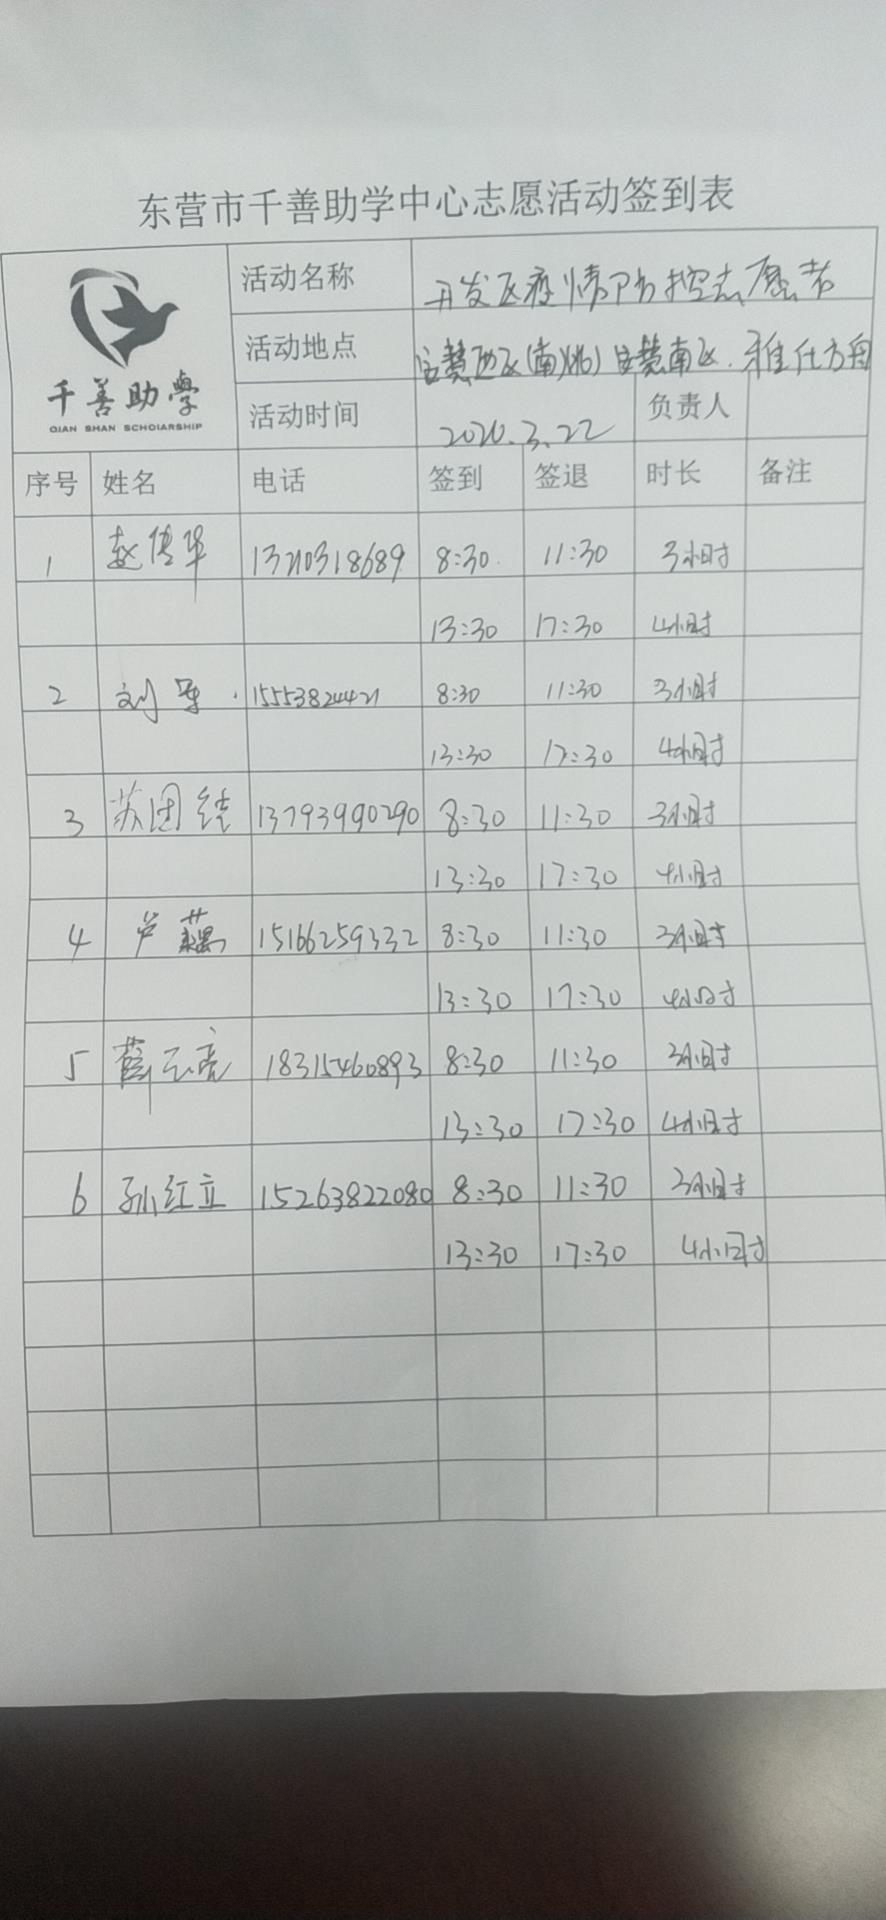 东营市千善助学中心志愿活动签到表
千善助學
QIAN SHAN SCHOLARSHIP
活动名称 开发区疫情防控志愿者
活动地点 安慧西区(南 ) 安慧南区. 雅仕方舟
活动时间 2020.3.22 负责人
序号 姓名 电话 签到 签退 时长 备注
1 赵传华 13210318689 8:30 11:30 3小时
13:30 17:30 4小时
2 刘军 15553824421 8:30 11:30 3小时
13:30 17:30 4小时
3 苏团结 13793990290 8:30 11:30 3小时
13:30 17:30 4小时
4 芦藕 15166259332 8:30 11:30 3小时
13:30 17:30 4小时
5 薛云亮 18315460893 8:30 11:30 3小时
13:30 17:30 4小时
6 孙红立 15263822080 8:30 11:30 3小时
13:30 17:30 4小时